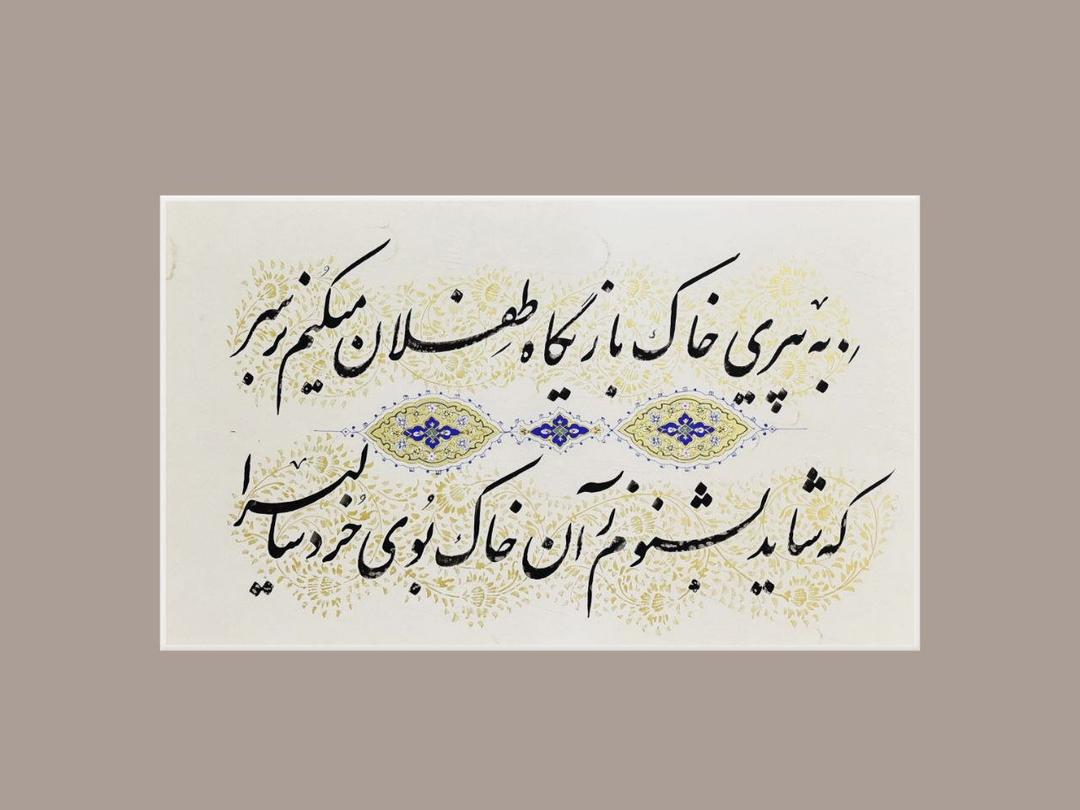 به پیری خاک بازیگاه طفلان میکنم بر سر
که شاید بشنوم زآن خاک بُوی خُردسالی را